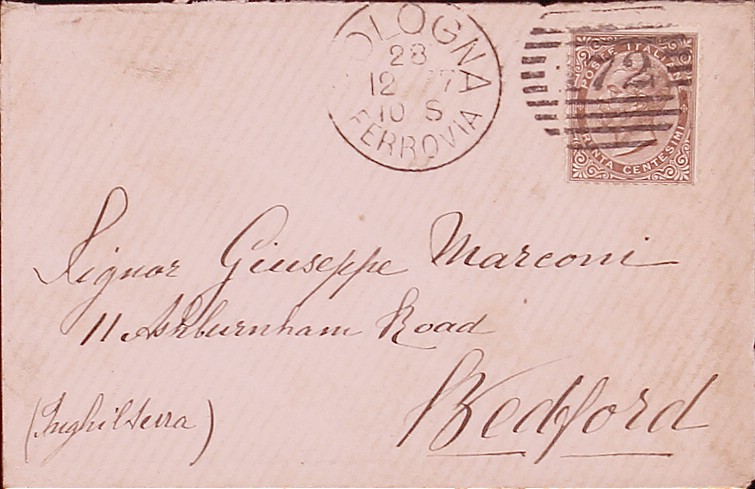 BOLOGNA
28
12 77
10 S
FERROVIA
72
POSTE ITALIANE
TRENTA CENTESIMI
Signor Giuseppe Marconi
11 Ashburnham Road
Bedford
(Inghilterra)